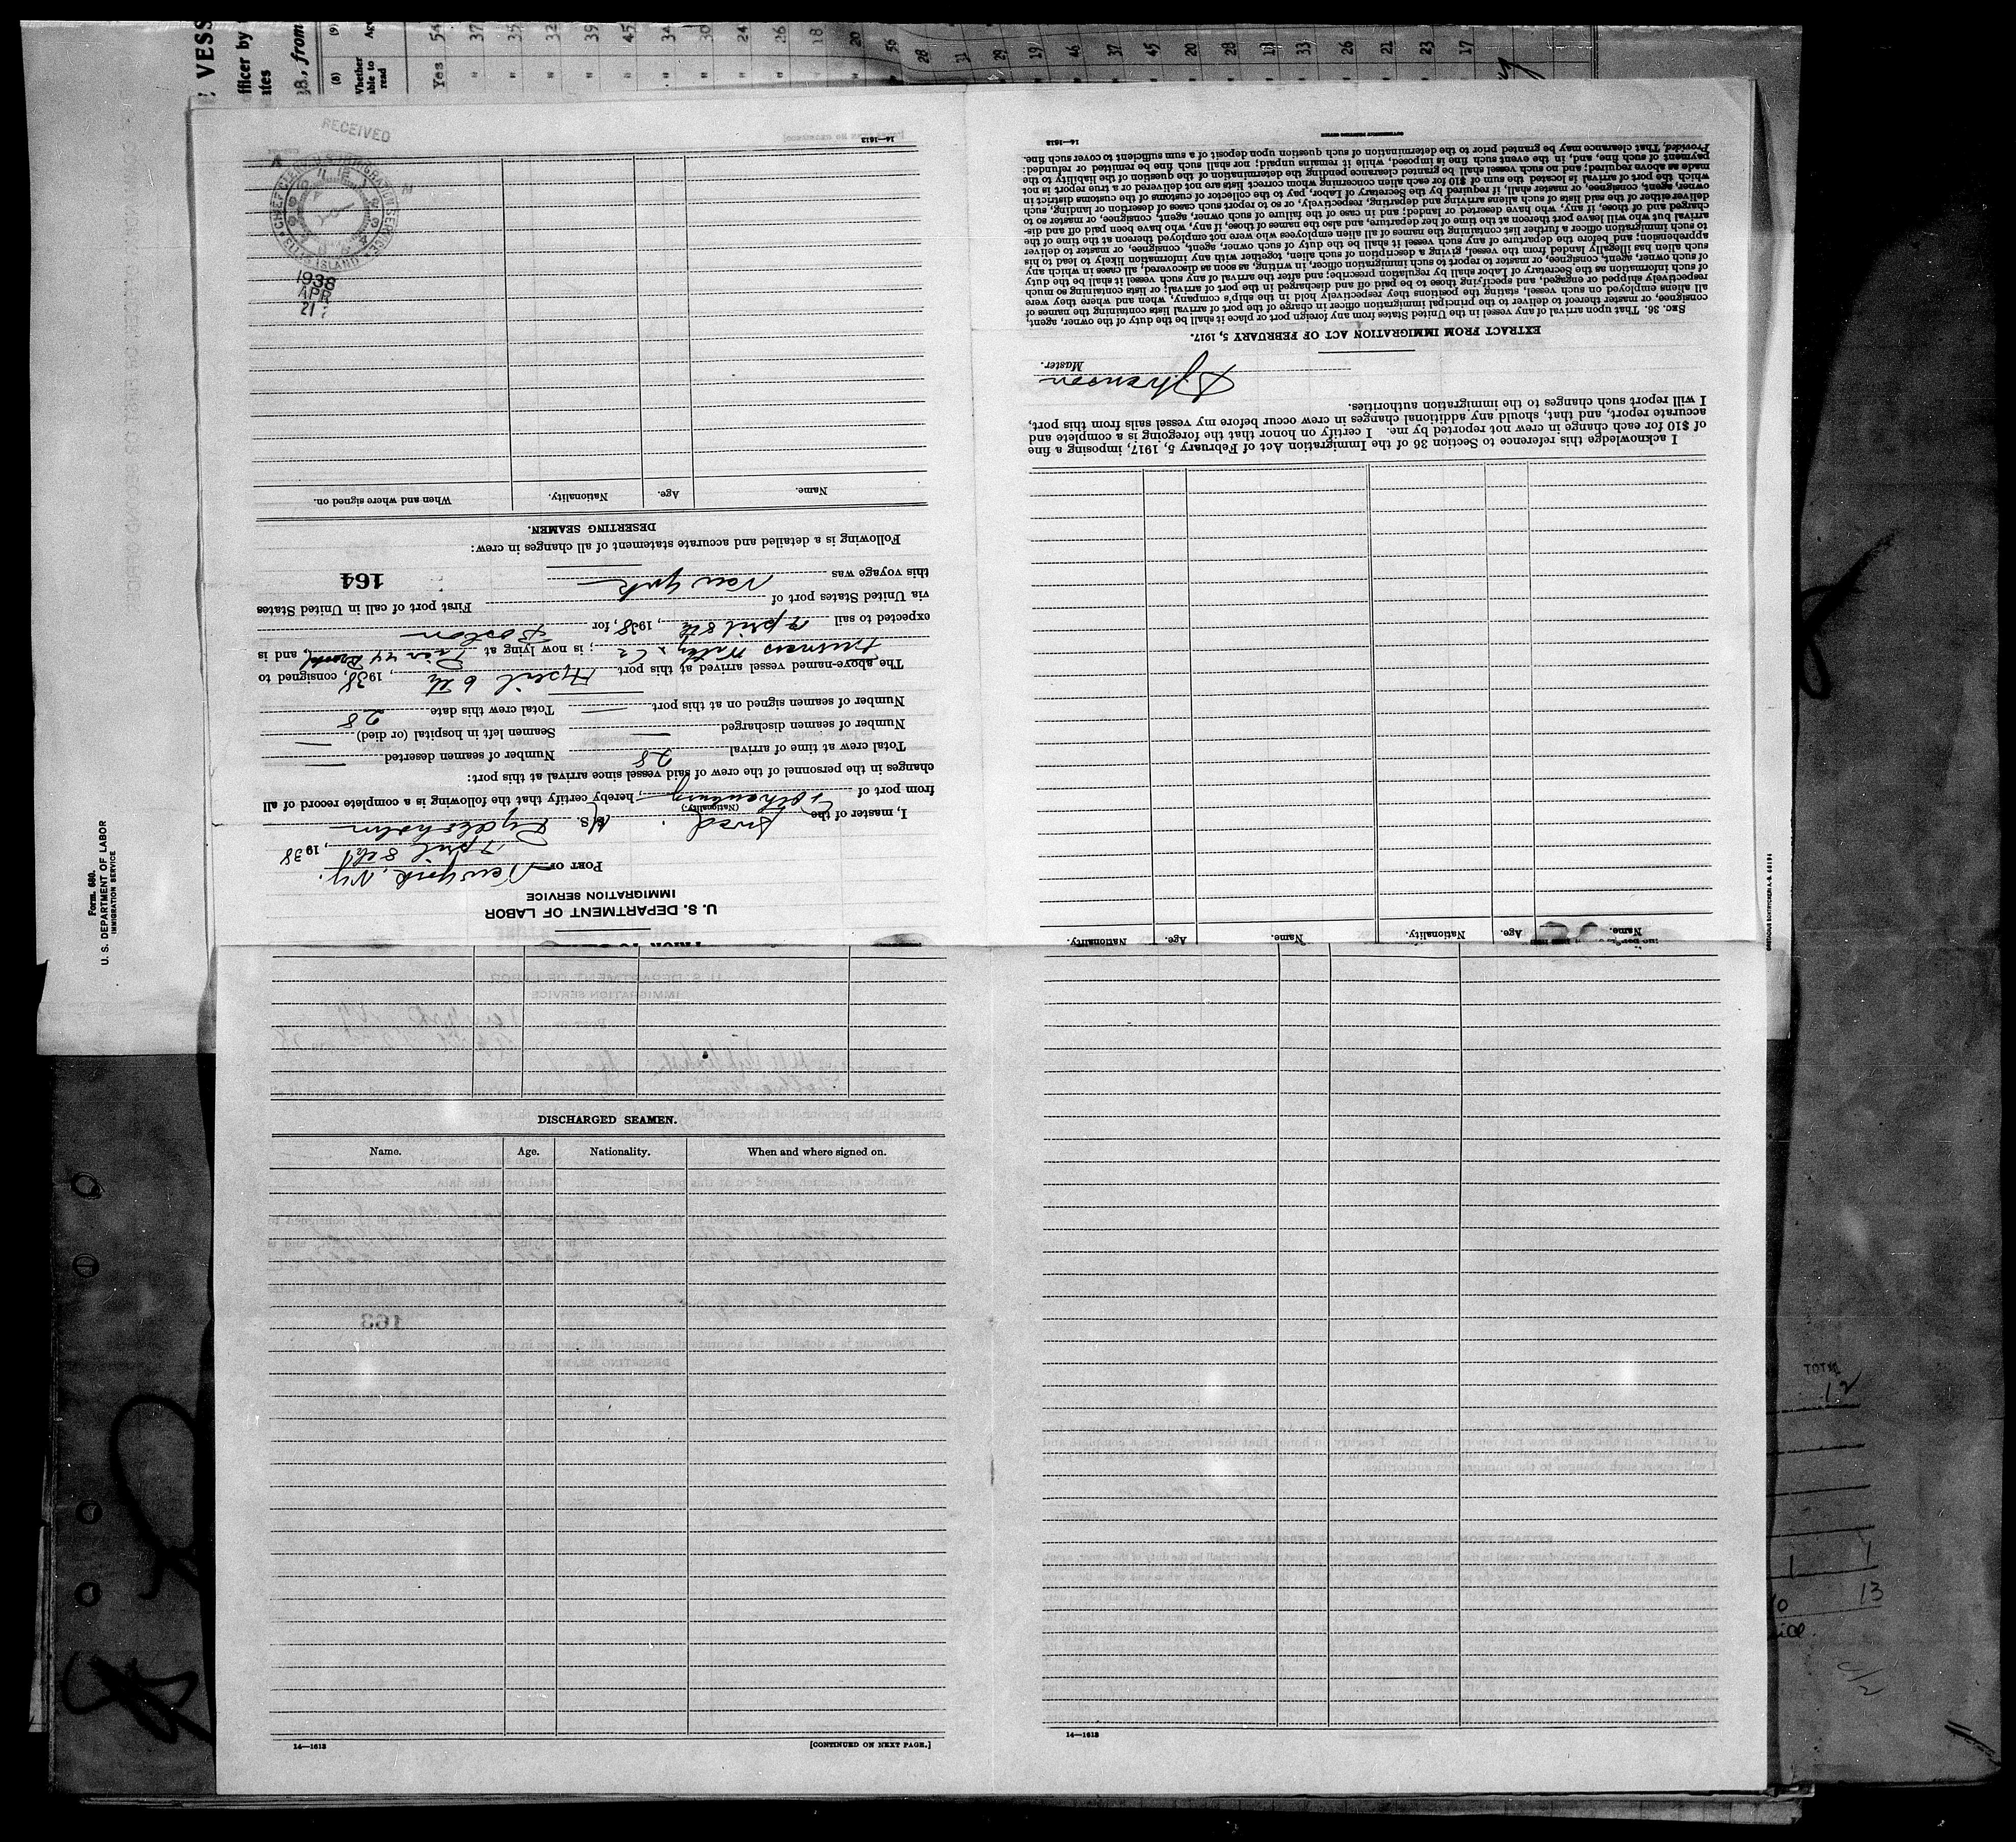 VESS
fficer by
ates
38., from
(8)
(9)
Whether able to read
Ag
Yes 54
" 37
" 35
" 32
" 39
" 45
" 34
" 30
" 24
" 26
" 18
" 20
56
28
31
29
19
46
37
45
20
28
18
33
26
21
23
17
Form 680.
U. S. DEPARTMENT OF LABOR
IMMIGRATION SERVICE
U. S. DEPARTMENT OF LABOR
IMMIGRATION SERVICE
PORT OF New York, N.Y.
April 8th, 1938
I, master of the Swed. M.S.
(Nationality.)
from port of Gothenburg, hereby certify that the following is a complete record of all
changes in the personnel of the crew of said vessel since arrival at this port:
Total crew at time of arrival 28 Number of seamen deserted —
Number of seamen discharged — Seamen left in hospital (or died) —
Number of seamen signed on at this port — Total crew this date 28
The above-named vessel arrived at this port April 6th, 1938, consigned to
; is now lying at Pier 44, and is
expected to sail April 8th, 1938, for Boston
via United States port of First port of call in United States
this voyage was New York
164
Following is a detailed and accurate statement of all changes in crew:
DESERTING SEAMEN.
Name. Age. Nationality. When and where signed on.
14—1613
RECEIVED
CHIEF CLERK U.S. IMMIGRATION SERVICE
ELLIS ISLAND
1938
APR
21
Name. Age. Nationality. Name. Age. Nationality.
I acknowledge this reference to Section 36 of the Immigration Act of February 5, 1917, imposing a fine
of $10 for each change in crew not reported by me. I certify on honor that the foregoing is a complete and
accurate report, and that, should any additional changes in crew occur before my vessel sails from this port,
I will report such changes to the immigration authorities.
Master.
EXTRACT FROM IMMIGRATION ACT OF FEBRUARY 5, 1917.
SEC. 36. That upon arrival of any vessel in the United States from any foreign port or place it shall be the duty of the owner, agent,
consignee, or master thereof to deliver to the principal immigration officer in charge of the port of arrival lists containing the names of
all aliens employed on such vessel, stating the positions they respectively hold in the ship's company, when and where they were
respectively shipped or engaged, and specifying those to be paid off and discharged in the port of arrival; or lists containing so much
of such information as the Secretary of Labor shall by regulation prescribe; and after the arrival of any such vessel it shall be the duty
of such owner, agent, consignee, or master to report to such immigration officer, in writing, as soon as discovered, all cases in which any
such alien has illegally landed from the vessel giving a description of such alien, together with any information likely to lead to his
apprehension; and before the departure of any such vessel it shall be the duty of such owner, agent, consignee, or master to deliver
to such immigration officer a further list containing the names of all alien employees who were not employed thereon at the time of the
arrival but who will leave port thereon at the time of her departure, and also the names of those, if any, who have been paid off and dis-
charged and of those, if any, who have deserted or landed; and in case of the failure of such owner, agent, consignee, or master so to
deliver either of the said lists of such aliens arriving and departing, respectively, or so to report such cases of desertion or landing, such
owner, agent, consignee, or master shall, if required by the Secretary of Labor, pay to the collector of customs of the customs district in
which the port of arrival is located the sum of $10 for each alien concerning whom correct lists are not delivered or a true report is not
made as above required; and no such vessel shall be granted clearance pending the determination of the question of the liability to the
payment of such fine, and, in the event such fine is imposed, while it remains unpaid; nor shall such fine be remitted or refunded:
Provided, That clearance may be granted prior to the determination of such question upon deposit of a sum sufficient to cover such fine.
14—1613
DISCHARGED SEAMEN.
Name. Age. Nationality. When and where signed on.
163
14—1613
[CONTINUED ON NEXT PAGE.]
14—1613
12
1 1
13